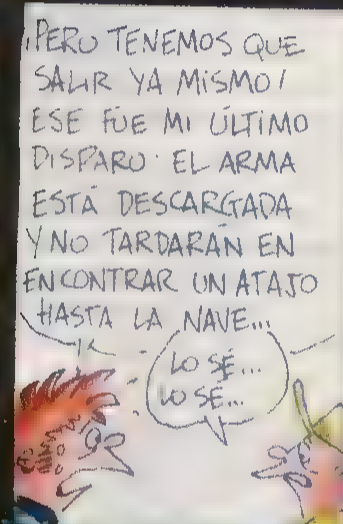 ¡PERO TENEMOS QUE
SALIR YA MISMO!
ESE FUE MI ÚLTIMO
DISPARO. EL ARMA
ESTÁ DESCARGADA
Y NO TARDARÁN EN
ENCONTRAR UN ATAJO
HASTA LA NAVE...
LO SÉ...
LO SÉ...